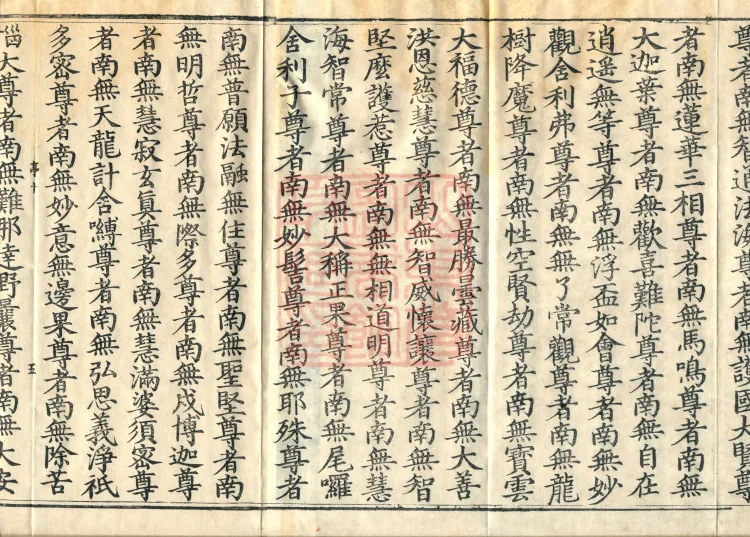 尊者南無智通法海尊者南無護國大賢尊
者南無蓮華三相尊者南無馬鳴尊者南無
大迦葉尊者南無歡喜難陀尊者南無自在
逍遥無等尊者南無浮盃如會尊者南無妙
觀舍利弗尊者南無無了常觀尊者南無龍
樹降魔尊者南無性空賢劫尊者南無寶雲
大福德尊者南無最勝雲藏尊者南無大善
洪恩慈慧尊者南無智威懷讓尊者南無智
堅麼護惹尊者南無無相道明尊者南無慧
海智常尊者南無大稱正果尊者南無尾囉
舍利子尊者南無妙髻尊者南無耶殊尊者
南無普願法融無住尊者南無聖堅尊者南
無明哲尊者南無際多尊者南無戍博迦尊
者南無慧寂玄真尊者南無慧滿婆須密尊
者南無天龍計舍嚩尊者南無弘思義淨祇
多密尊者南無妙意無邊果尊者南無除苦
亭十 五
惱大尊者南無難那達野曩尊者南無大安